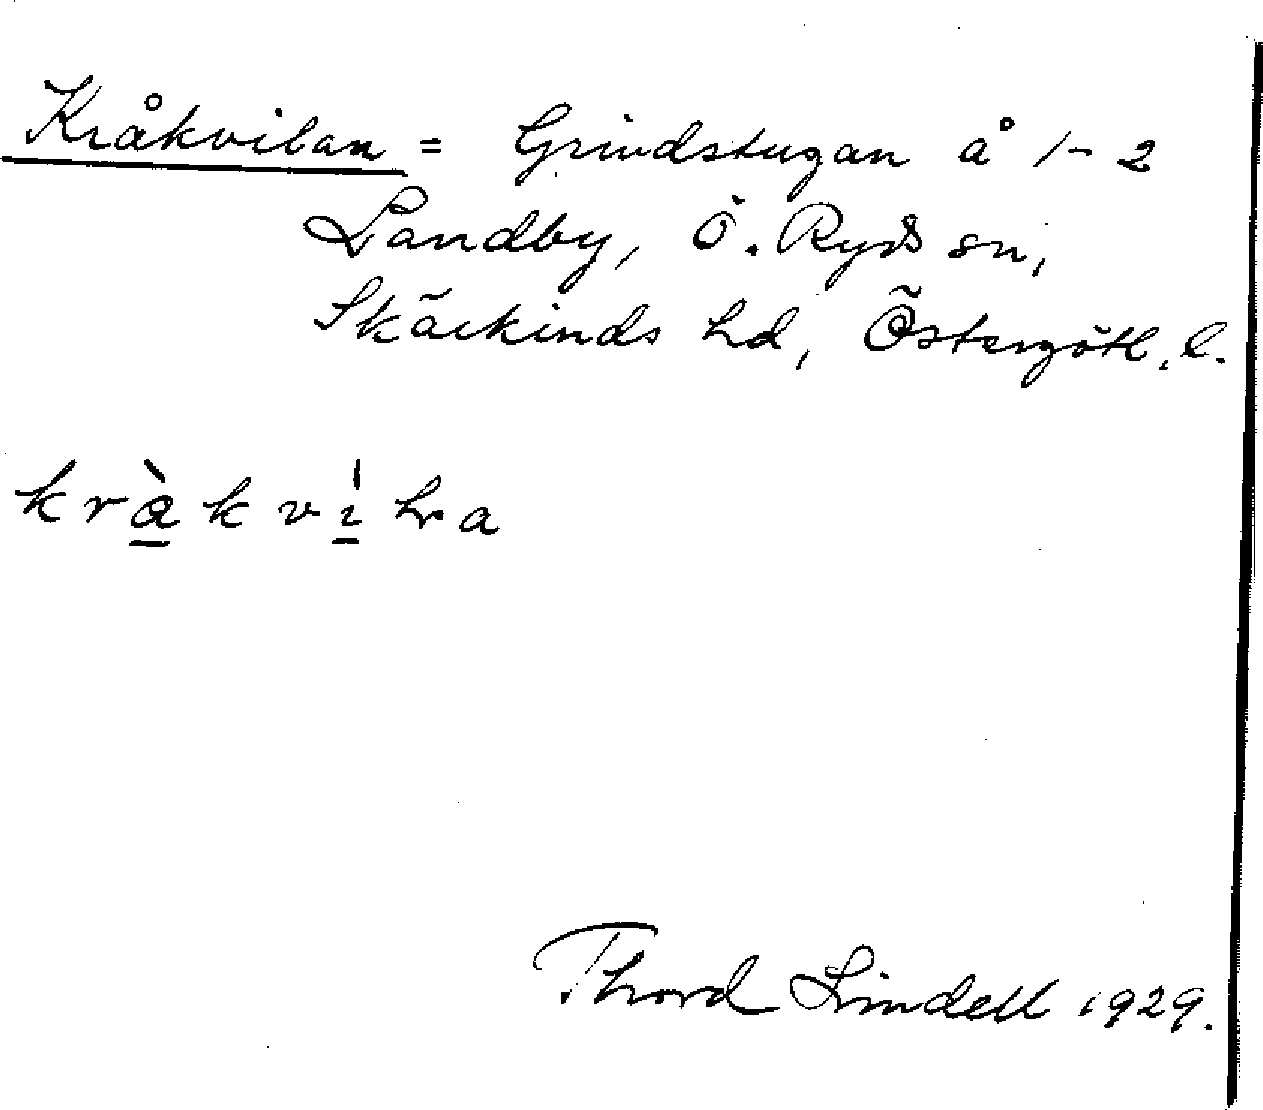 Kråkvilan = Grindstugan å 1-2
Landby, Ö. Ryds sn,
Skärkinds hd, Östergötl. l.
Thord Lindell 1929.